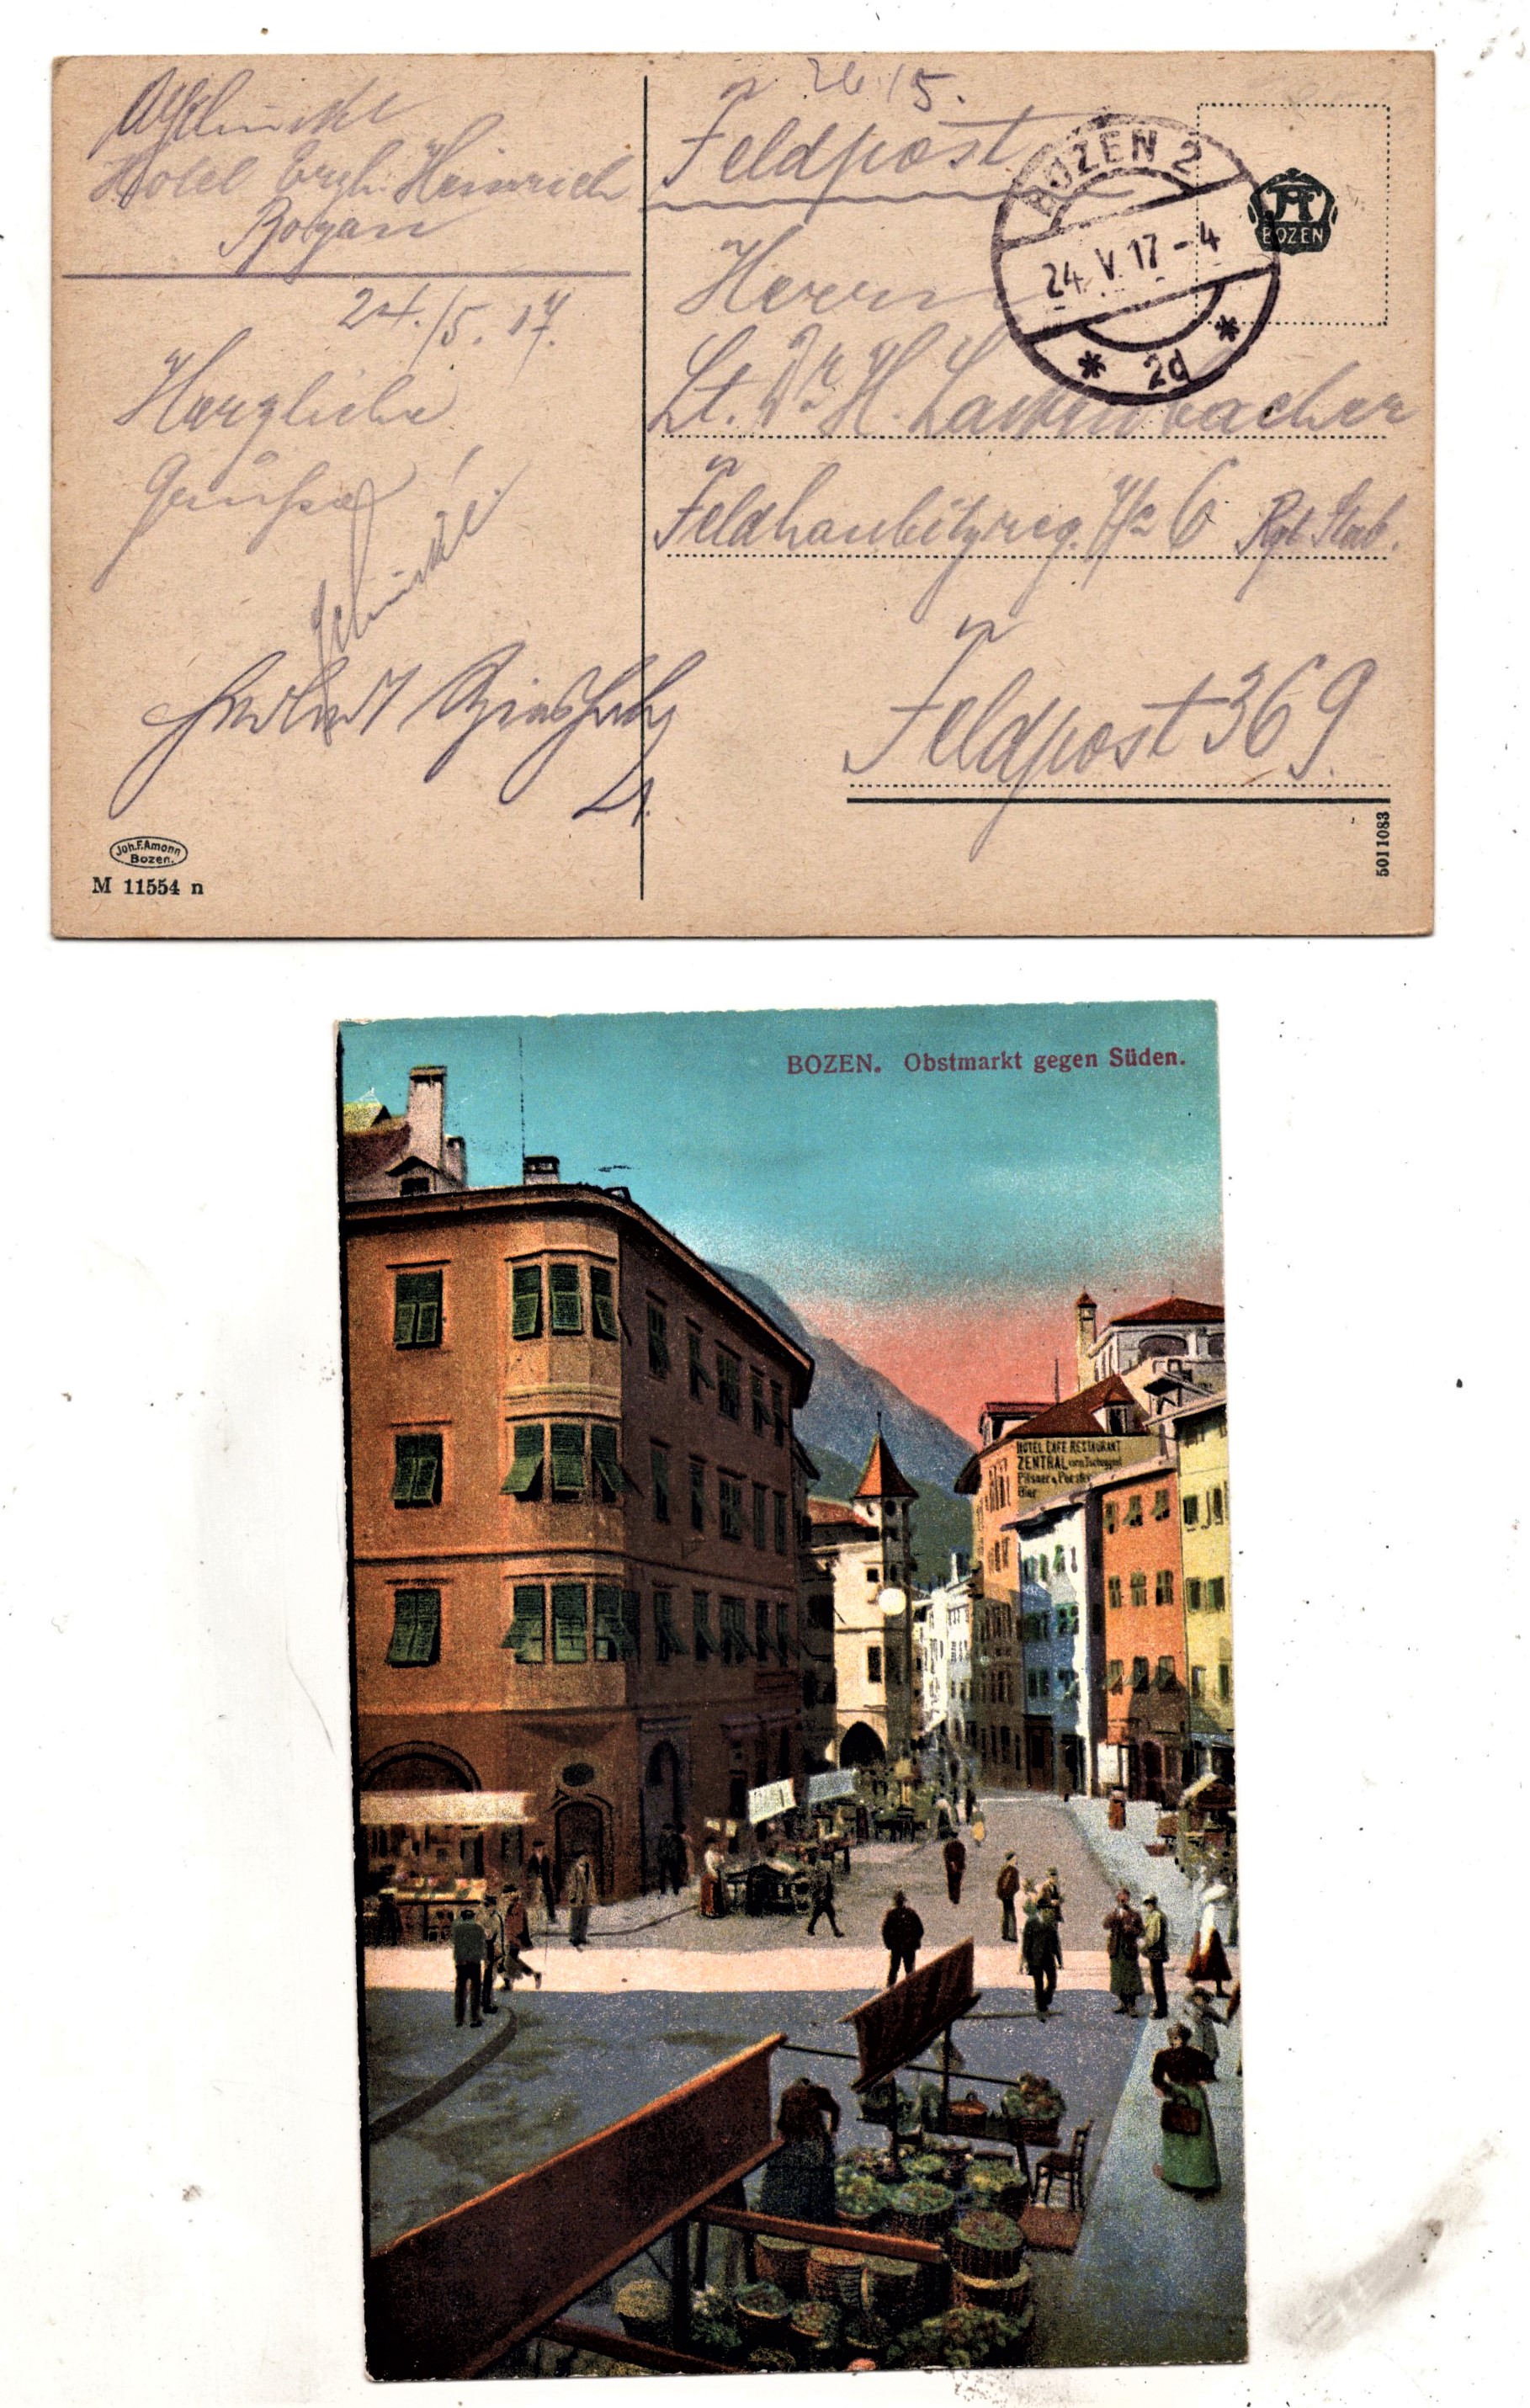 Hotel Erzh. Heinrich
Bozen
24./5.17.
Herzliche
Grüße!
Lt.
Joh.F.Amonn
Bozen.
M 11554 n
26/5.
Feldpost
BOZEN 2
24.V.17-4
* 2d *
BOZEN
Herrn
Lt. Dr. H. Lackenbacher
Feldhaubitzreg. No 6 Rgt. Stab.
Feldpost 369.
5011083
BOZEN. Obstmarkt gegen Süden.
HOTEL CAFE RESTAURANT
ZENTRAL
Pilsner
Bier